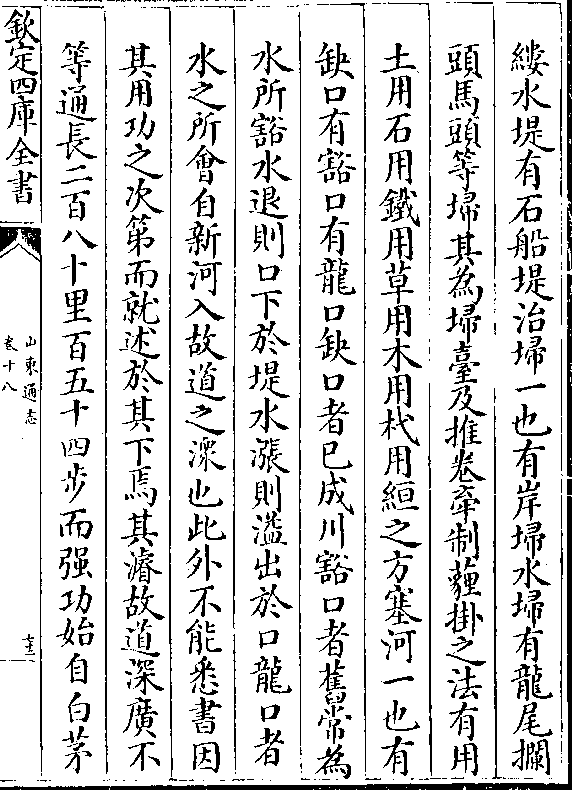 縷水堤有石船堤治埽一也有岸埽水埽有龍尾攔
頭馬頭等埽其為埽臺及推卷牽制薶掛之法有用
土用石用鐵用草用木用杙用絙之方塞河一也有
缺口有豁口有龍口缺口者已成川豁口者舊常為
水所豁水退則口下於堤水漲則溢出於口龍口者
水之所會自新河入故道之潨也此外不能悉書因
其用功之次第而就述於其下焉其濬故道深廣不
等通長二百八十里百五十四步而强功始自白茅
欽定四庫全書
山東通志
卷十八
七三